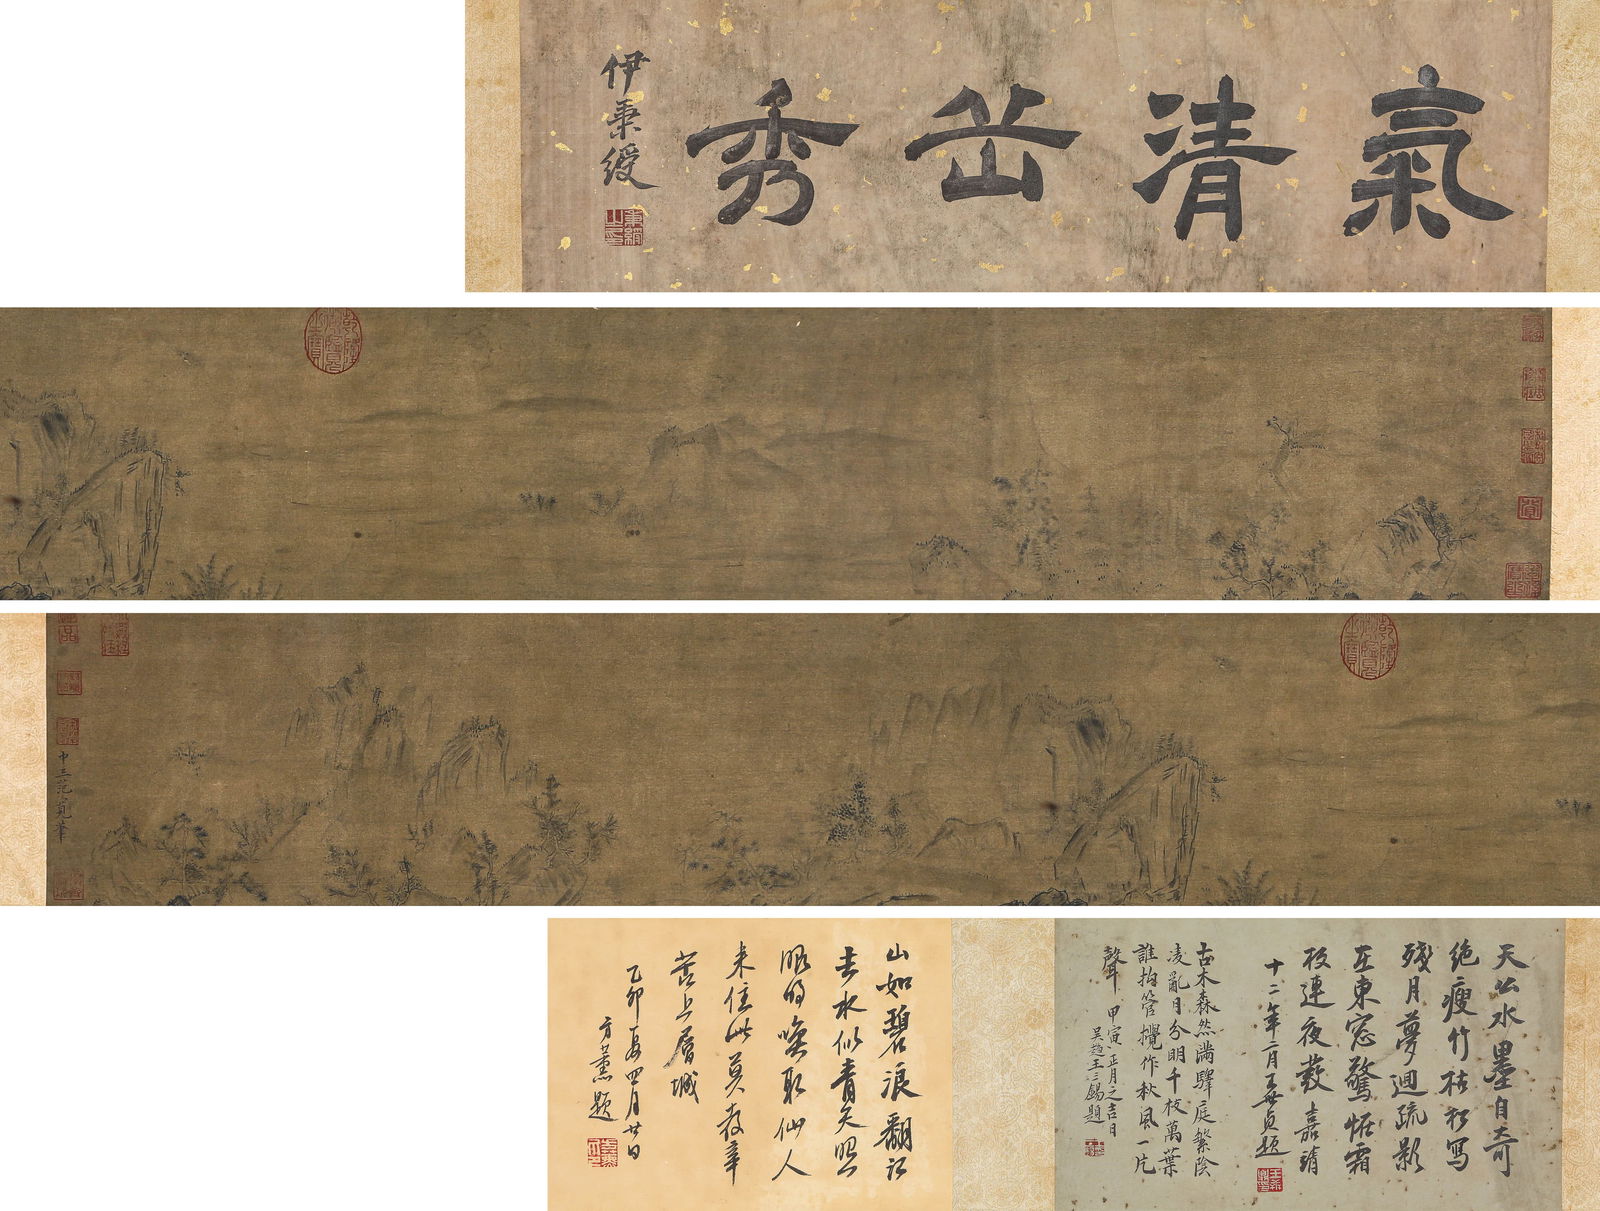 氣清岳秀
伊秉綬
乾隆御覽之寶
中立范寬筆
乾隆御覽之寶
天公水墨自奇
绝瘦竹枯松寫
殘月夢迴疏影
在東窓驚恠霜
枝連夜發嘉靖
十二年二月王世貞題
古木森然满驛庭繁陰
凌亂月分明千枝萬葉
誰拍管攪作秋風一片
聲 甲寅正月之吉日
吴趨王三錫題
山如碧浪翻江
去水似青天照
眼明喚取仙人
来住此莫教辛
苦上層城
乙卯夏四月廿日
方薰題